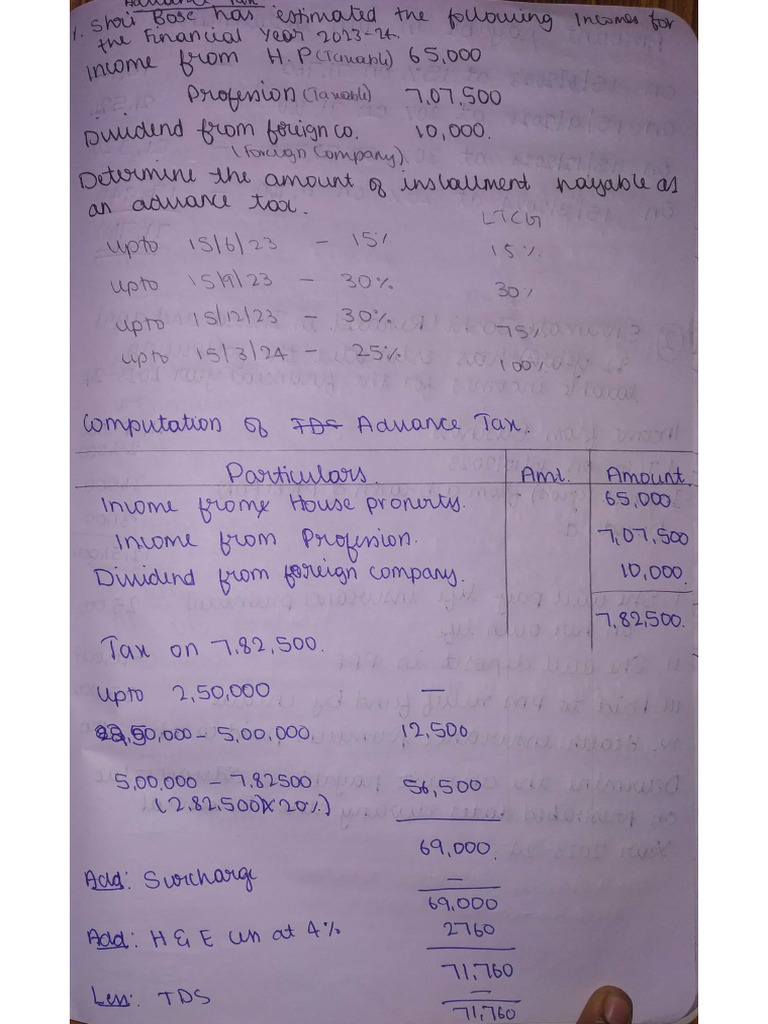 Advance Tax
1. Shri Bose has estimated the following Incomes for
the Financial Year 2023-24.
Income from H.P (Taxable) 65,000
Profession (Taxable) 7,07,500
Dividend from foreign co. 10,000.
(Foreign Company)
Determine the amount of installment payable as
an advance tax.
LTCG
upto 15/6/23 - 15% 15%
upto 15/9/23 - 30% 30%
upto 15/12/23 - 30% 75%
upto 15/3/24 - 25% 100%
Computation of TDS Advance Tax.
Particulars. Amt. Amount.
Income from House property. 65,000
Income from Profession. 7,07,500
Dividend from foreign company. 10,000
7,82,500.
Tax on 7,82,500.
Upto 2,50,000 —
2,50,000 - 5,00,000 12,500
5,00,000 - 7,82500 56,500
(2,82,500 X 20%)
69,000.
Add: Surcharge —
69,000
Add: H & E cess at 4% 2760
71,760
Less: TDS —
71,760